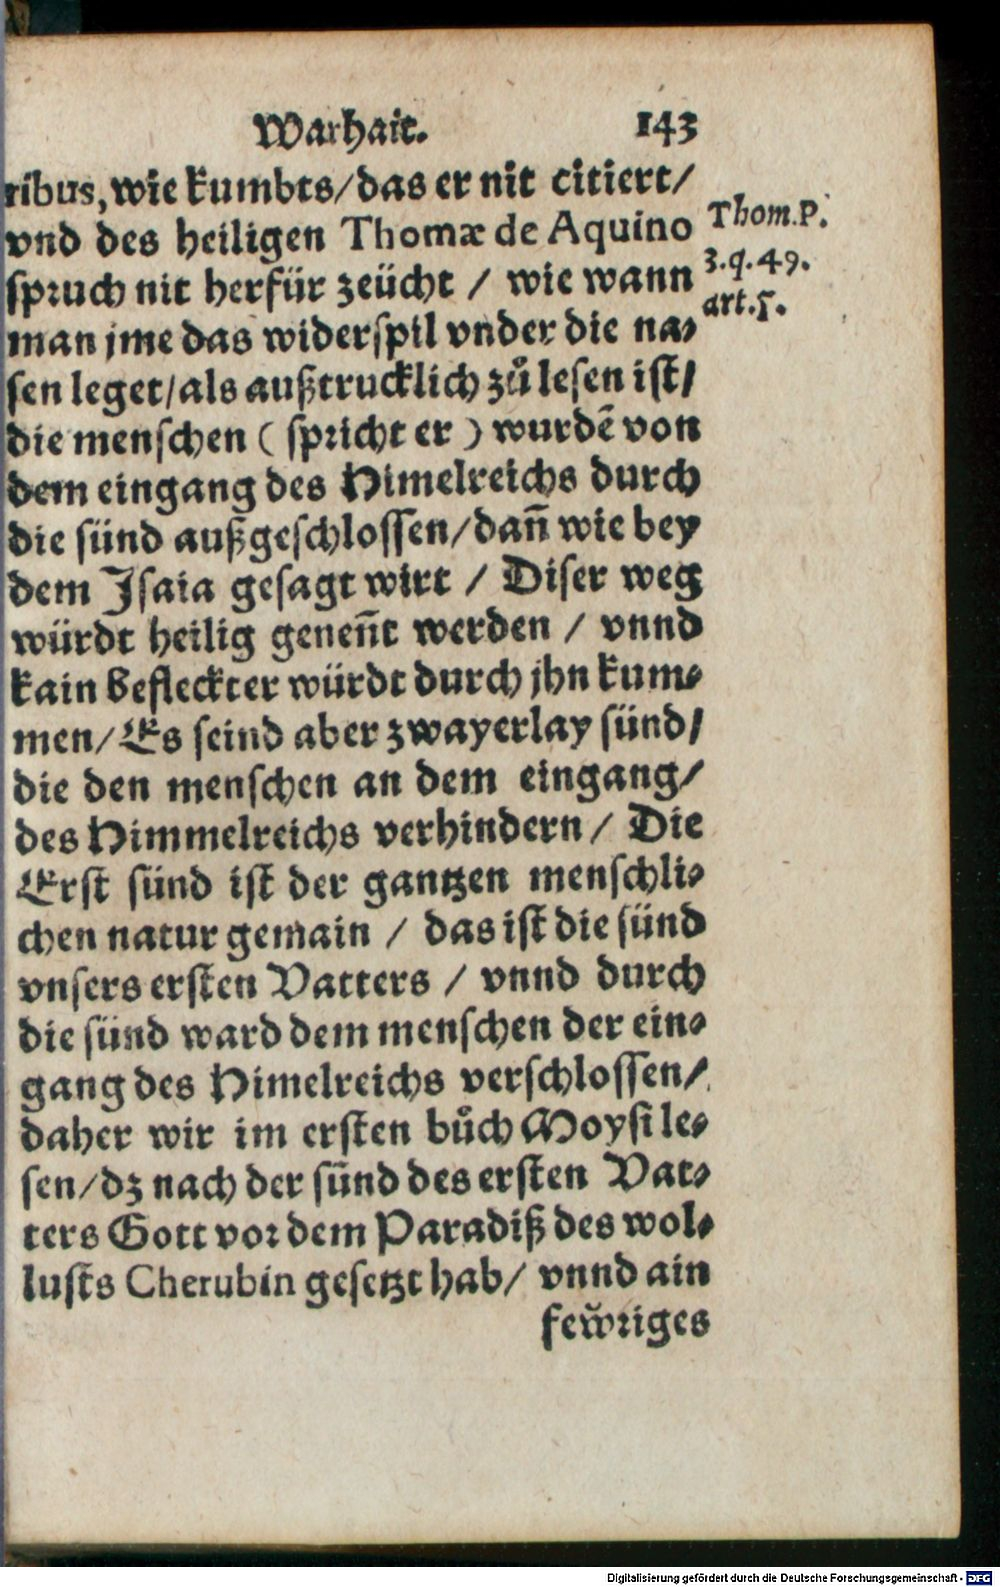 Warhait. 143
ribus, wie kumbts/das er nit citiert/
vnd des heiligen Thomæ de Aquino
spruch nit herfür zeücht / wie wann
man jme das widerspil vnder die na-
sen leget/als außtrucklich zů lesen ist/
die menschen ( spricht er ) wurdē von
dem eingang des Himelreichs durch
die sünd außgeschlossen/dañ wie bey
dem Isaia gesagt wirt / Diser weg
würdt heilig geneñt werden / vnnd
kain befleckter würdt durch jhn kum-
men/Es seind aber zwayerlay sünd/
die den menschen an dem eingang/
des Himmelreichs verhindern / Die
Erst sünd ist der gantzen menschli-
chen natur gemain / das ist die sünd
vnsers ersten Vatters / vnnd durch
die sünd ward dem menschen der ein-
gang des Himelreichs verschlossen/
daher wir im ersten bůch Moysi le-
sen/dz nach der sünd des ersten Vat-
ters Gott vor dem Paradiß des wol-
lusts Cherubin gesetzt hab/ vnnd ain
feẘriges
Thom.P.
3.q.49.
art.5.
Digitalisierung gefördert durch die Deutsche Forschungsgemeinschaft - DFG